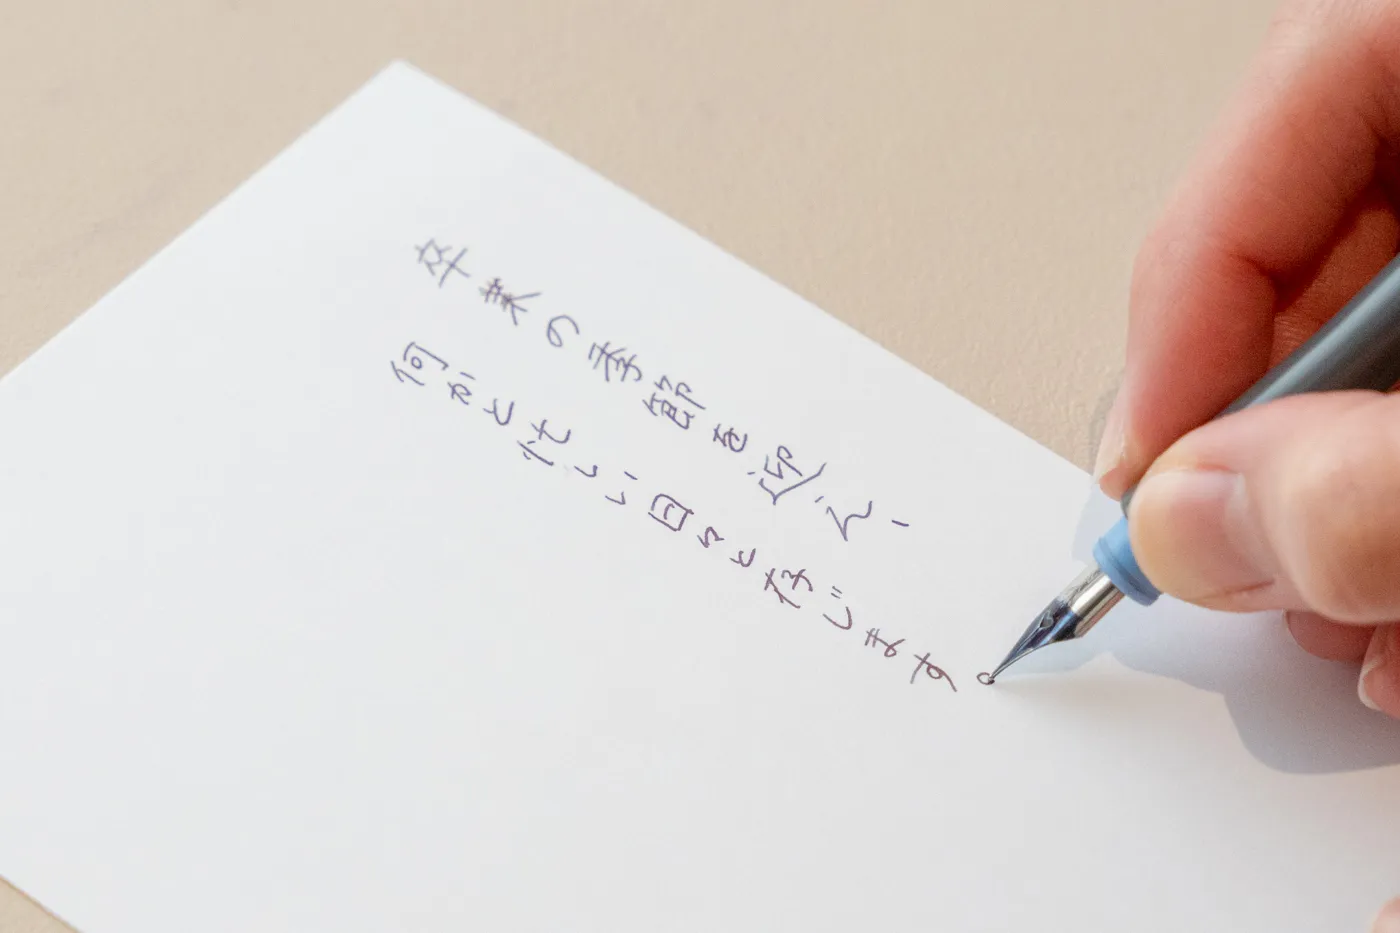 卒業の季節を迎え、
何かと忙しい日々と存じます。